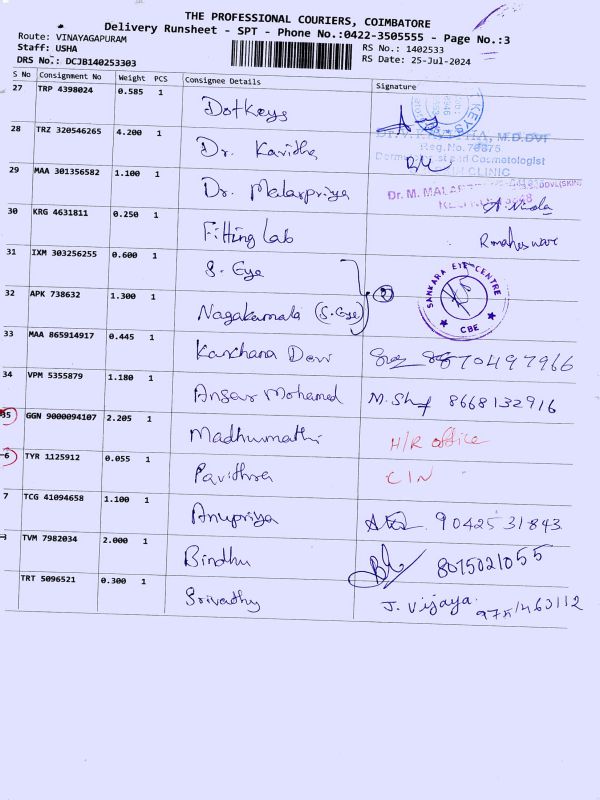 THE PROFESSIONAL COURIERS, COIMBATORE
Delivery Runsheet - SPT - Phone No.:0422-3505555 - Page No.:3
Route: VINAYAGAPURAM
Staff: USHA
DRS No.: DCJB140253303
RS No.: 1402533
RS Date: 25-Jul-2024
S No Consignment No Weight PCS Consignee Details Signature
27 TRP 4398024 0.585 1 Dotkeys
28 TRZ 320546265 4.200 1 Dr. Kavidha
M.D.DVL
Reg.No.78875
Cosmetologist
CLINIC
29 MAA 301356582 1.100 1 Dr. Malarpriya
Dr. M. MALAR
30 KRG 4631811 0.250 1 Fitting Lab
31 IXM 303256255 0.600 1 S. Eye
32 APK 738632 1.300 1 Nagakamala (S. Eye) 2
SANKARA EYE CENTRE
CBE
33 MAA 865914917 0.445 1 Kanchana Devi
34 VPM 5355879 1.180 1 Ansar Mohamed 8668132916
35 GGN 9000094107 2.205 1 Madhumathi H/R office
6 TYR 1125912 0.055 1 Pavithra C I N
7 TCG 41094658 1.100 1 Anupriya 9042531843
TVM 7982034 2.000 1 Bindhu 8075021055
TRT 5096521 0.300 1 Srivadhy J. Vijaya